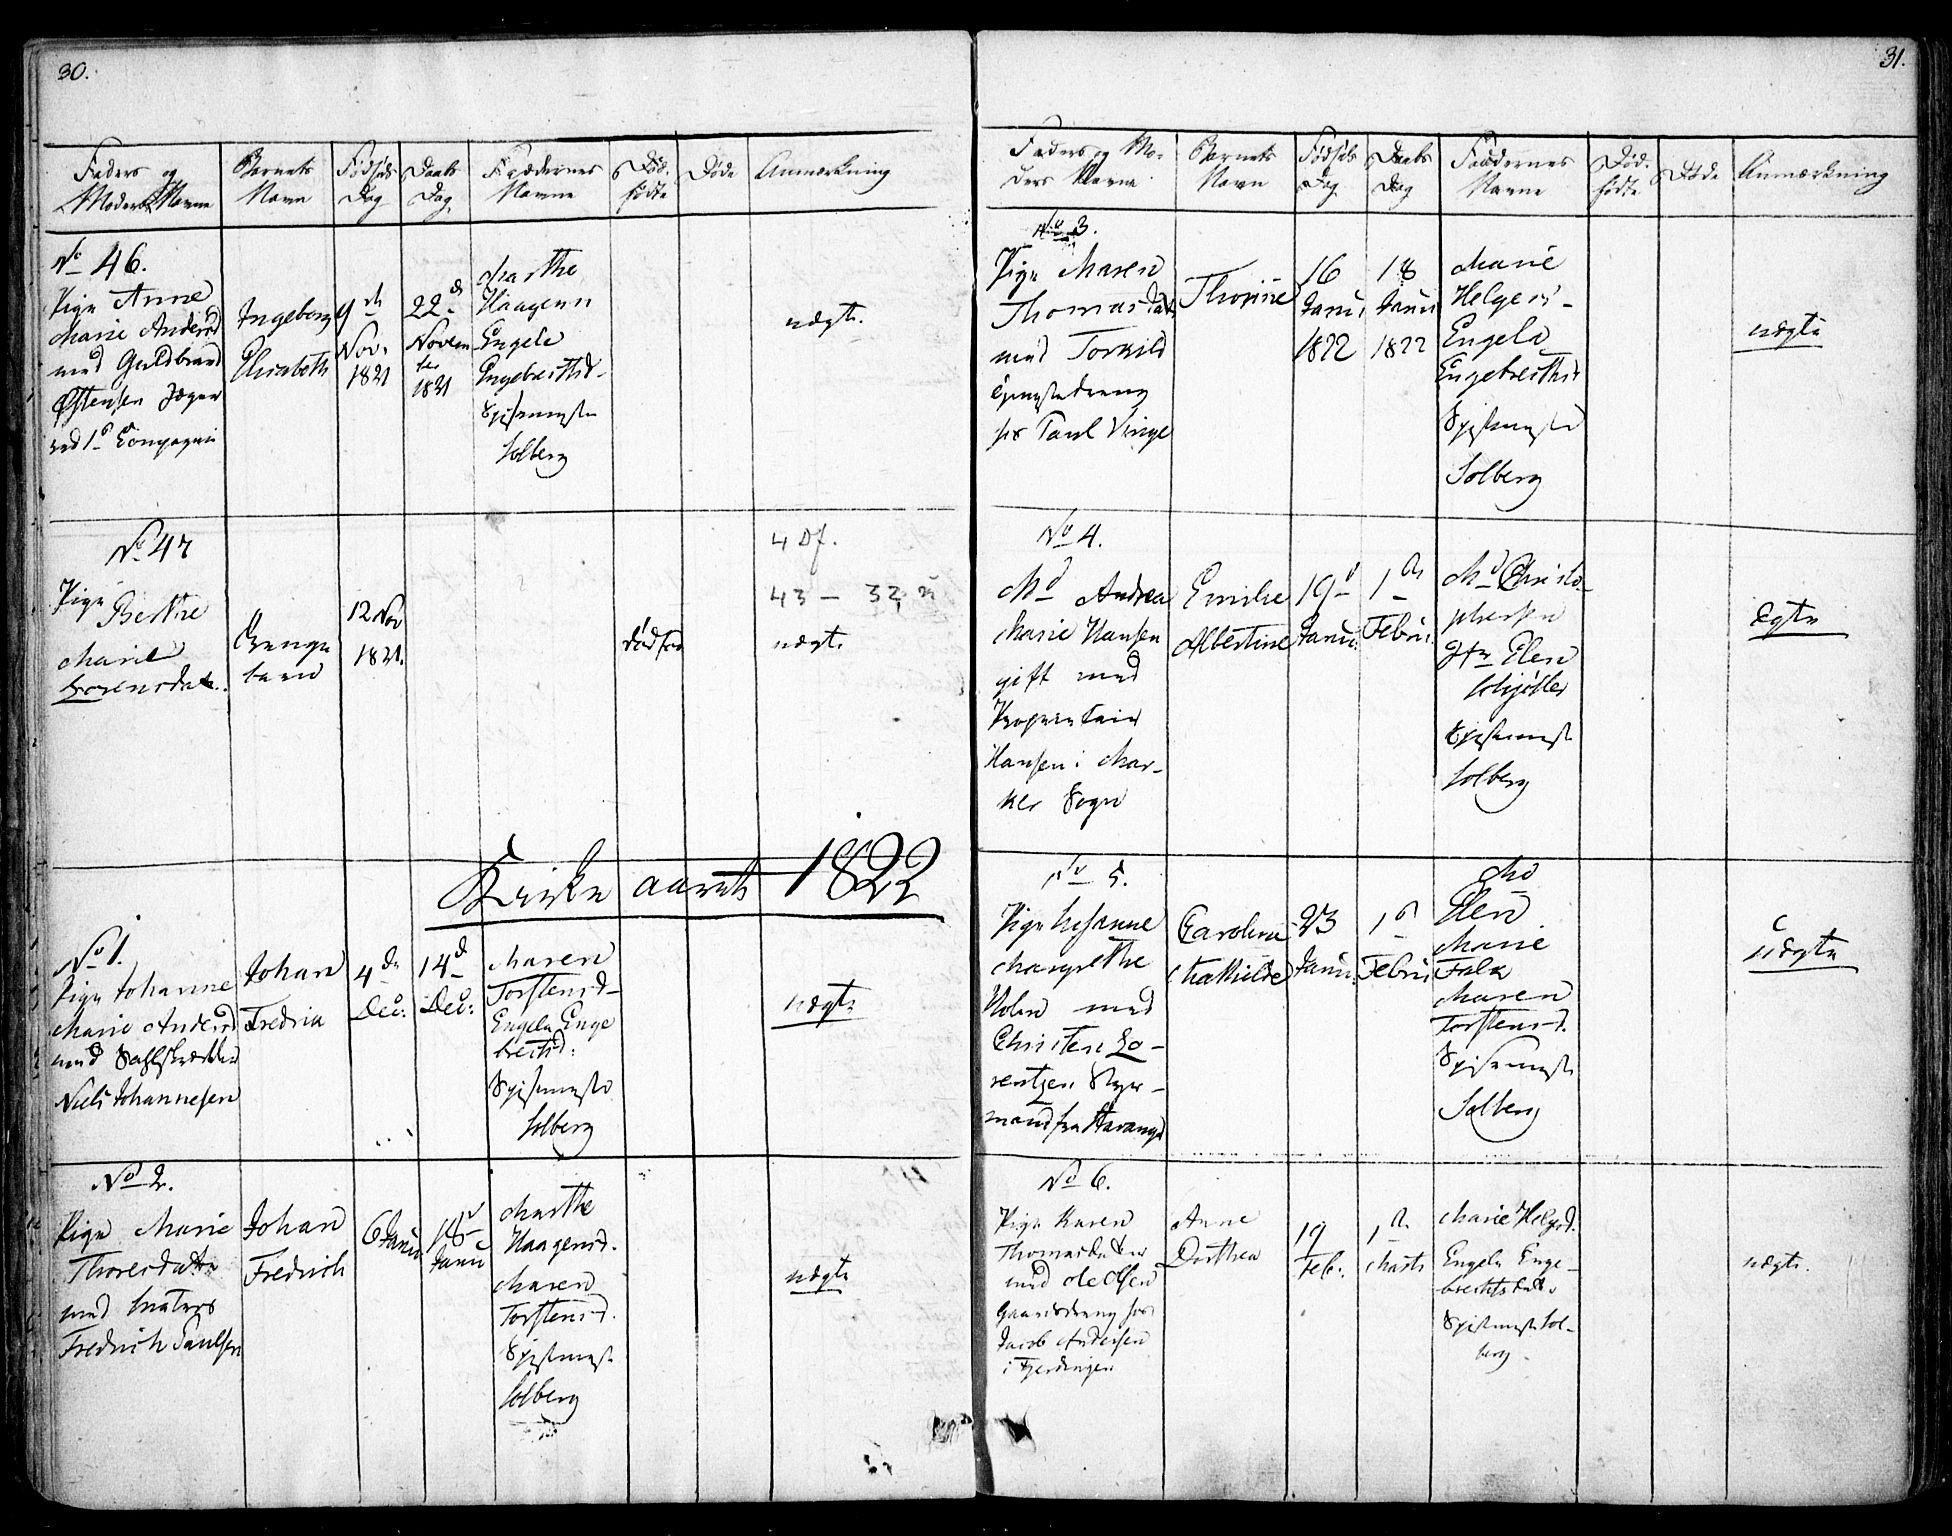 30.
Faders og Moders Navne
Barnets Navn
Fødsels Dag
Daabs Dag
Faddernes Navne
Død-fødte
Døde
Anmærkning
No 46.
Pige Anne
Marie Andersd
med Guldbrand
Østensen Jæger
ved 1s Compagnie
Ingeborg
Elisabeth
9de
Nov.
1821
22de
Novem
ber
1821
Marthe
Haagens
Engele
Engebrethsd
Spisemester
Solberg
uægte.
No 47
Pige Berthe
Marie
Sorensdat.
Drenge
barn
12 Nov
1821.
dødfød
4 Df.
43 - 32
uægte
Kirke aaret 1822
No 1.
Pige Johanne
Marie Andersd
med
Niels Johannesen
Johan
Fredrik
4de
Dec:
14d
Dec:
Maren
Torstensd
Engele Enge
bretsd:
Spisemester
Solberg
uægte
No 2.
Pige Marie
Thoresdatter
med Matros
Fredrich Paulsen
Johan
Fredrich
6 Janu
18d
Janu
Marthe
Haagensd.
Maren
Torstensd.
Spisemest
Solberg
uægte
31.
Faders og Mo-
ders Navne
Barnets Navn
Fødsels Dag
Daabs Dag
Faddernes Navne
Død-fødte
Døde
Anmærkning
No 3.
Pige Maren
Thomasdat
med Torkild
for Paul Vinge
Thorine
16
Janu
1822
18
Janu
1822
Marie
Helges
Engele
Engebrethsd
Spisemester
Solberg
uægte
No 4.
Md Andrea
Marie Hansen
gift med
Proprietair
Hansen i Mar-
ker Sogn
Emilie
Albertine
19d
Janu:
1de
Febru.
Md Christo-
phersen
Elen
Spisemest
Solberg
Egte
No 5.
Pige Susanne
Margrethe
Holm med
Christen Lo-
rentzen Styr-
mand fra Stavanger
Caroline
Mathilde
23
Janu:
1d
Febru
Md
Elen
Marie
Falk
Maren
Torstensd.
Spisemest
Solberg
Uægte
No 6.
Pige Karen
Thomasdatter
med Ole Olsen
Gaardsdreng hos
Jacob Andersen
i Fjerdingen
Anne
Dorthea
19
Feb:
1de
Marts
Marie Helgsd.
Engele Enge-
brechtsdat.
Spisemest Sol-
berg
uægte.